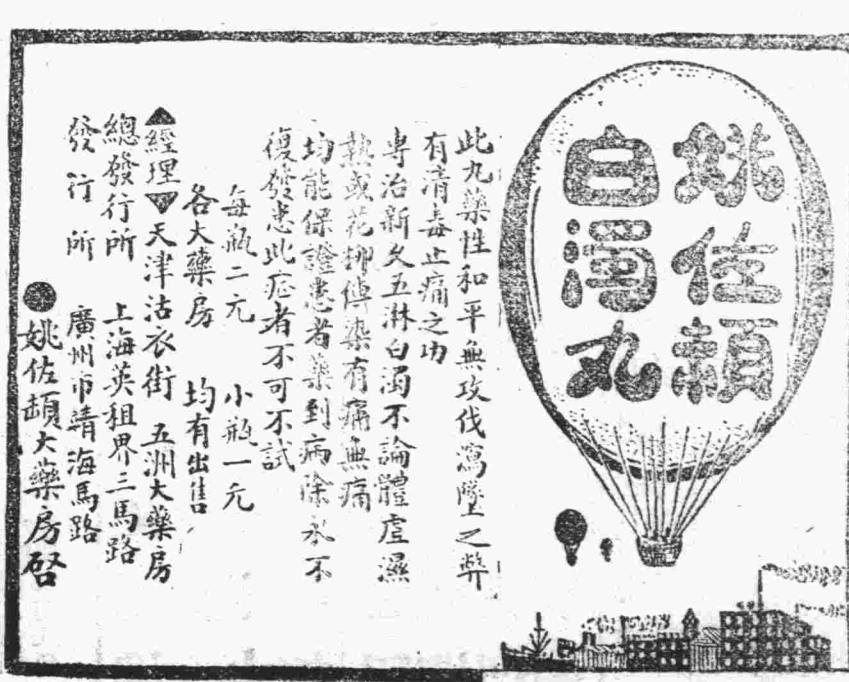 姚佐頓
白濁丸
此丸藥性和平無攻伐瀉墜之弊
有清毒止痛之功
專治新久五淋白濁不論體虛濕
熱或花柳傳染有痛無痛
均能保證患者藥到病除永不
復發患此症者不可不試
每瓶二元　小瓶一元
各大藥房　均有出售
▲經理▼天津沽衣街　五洲大藥房
總發行所　上海英租界三馬路
發行所　廣州市靖海馬路
●姚佐頓大藥房啓